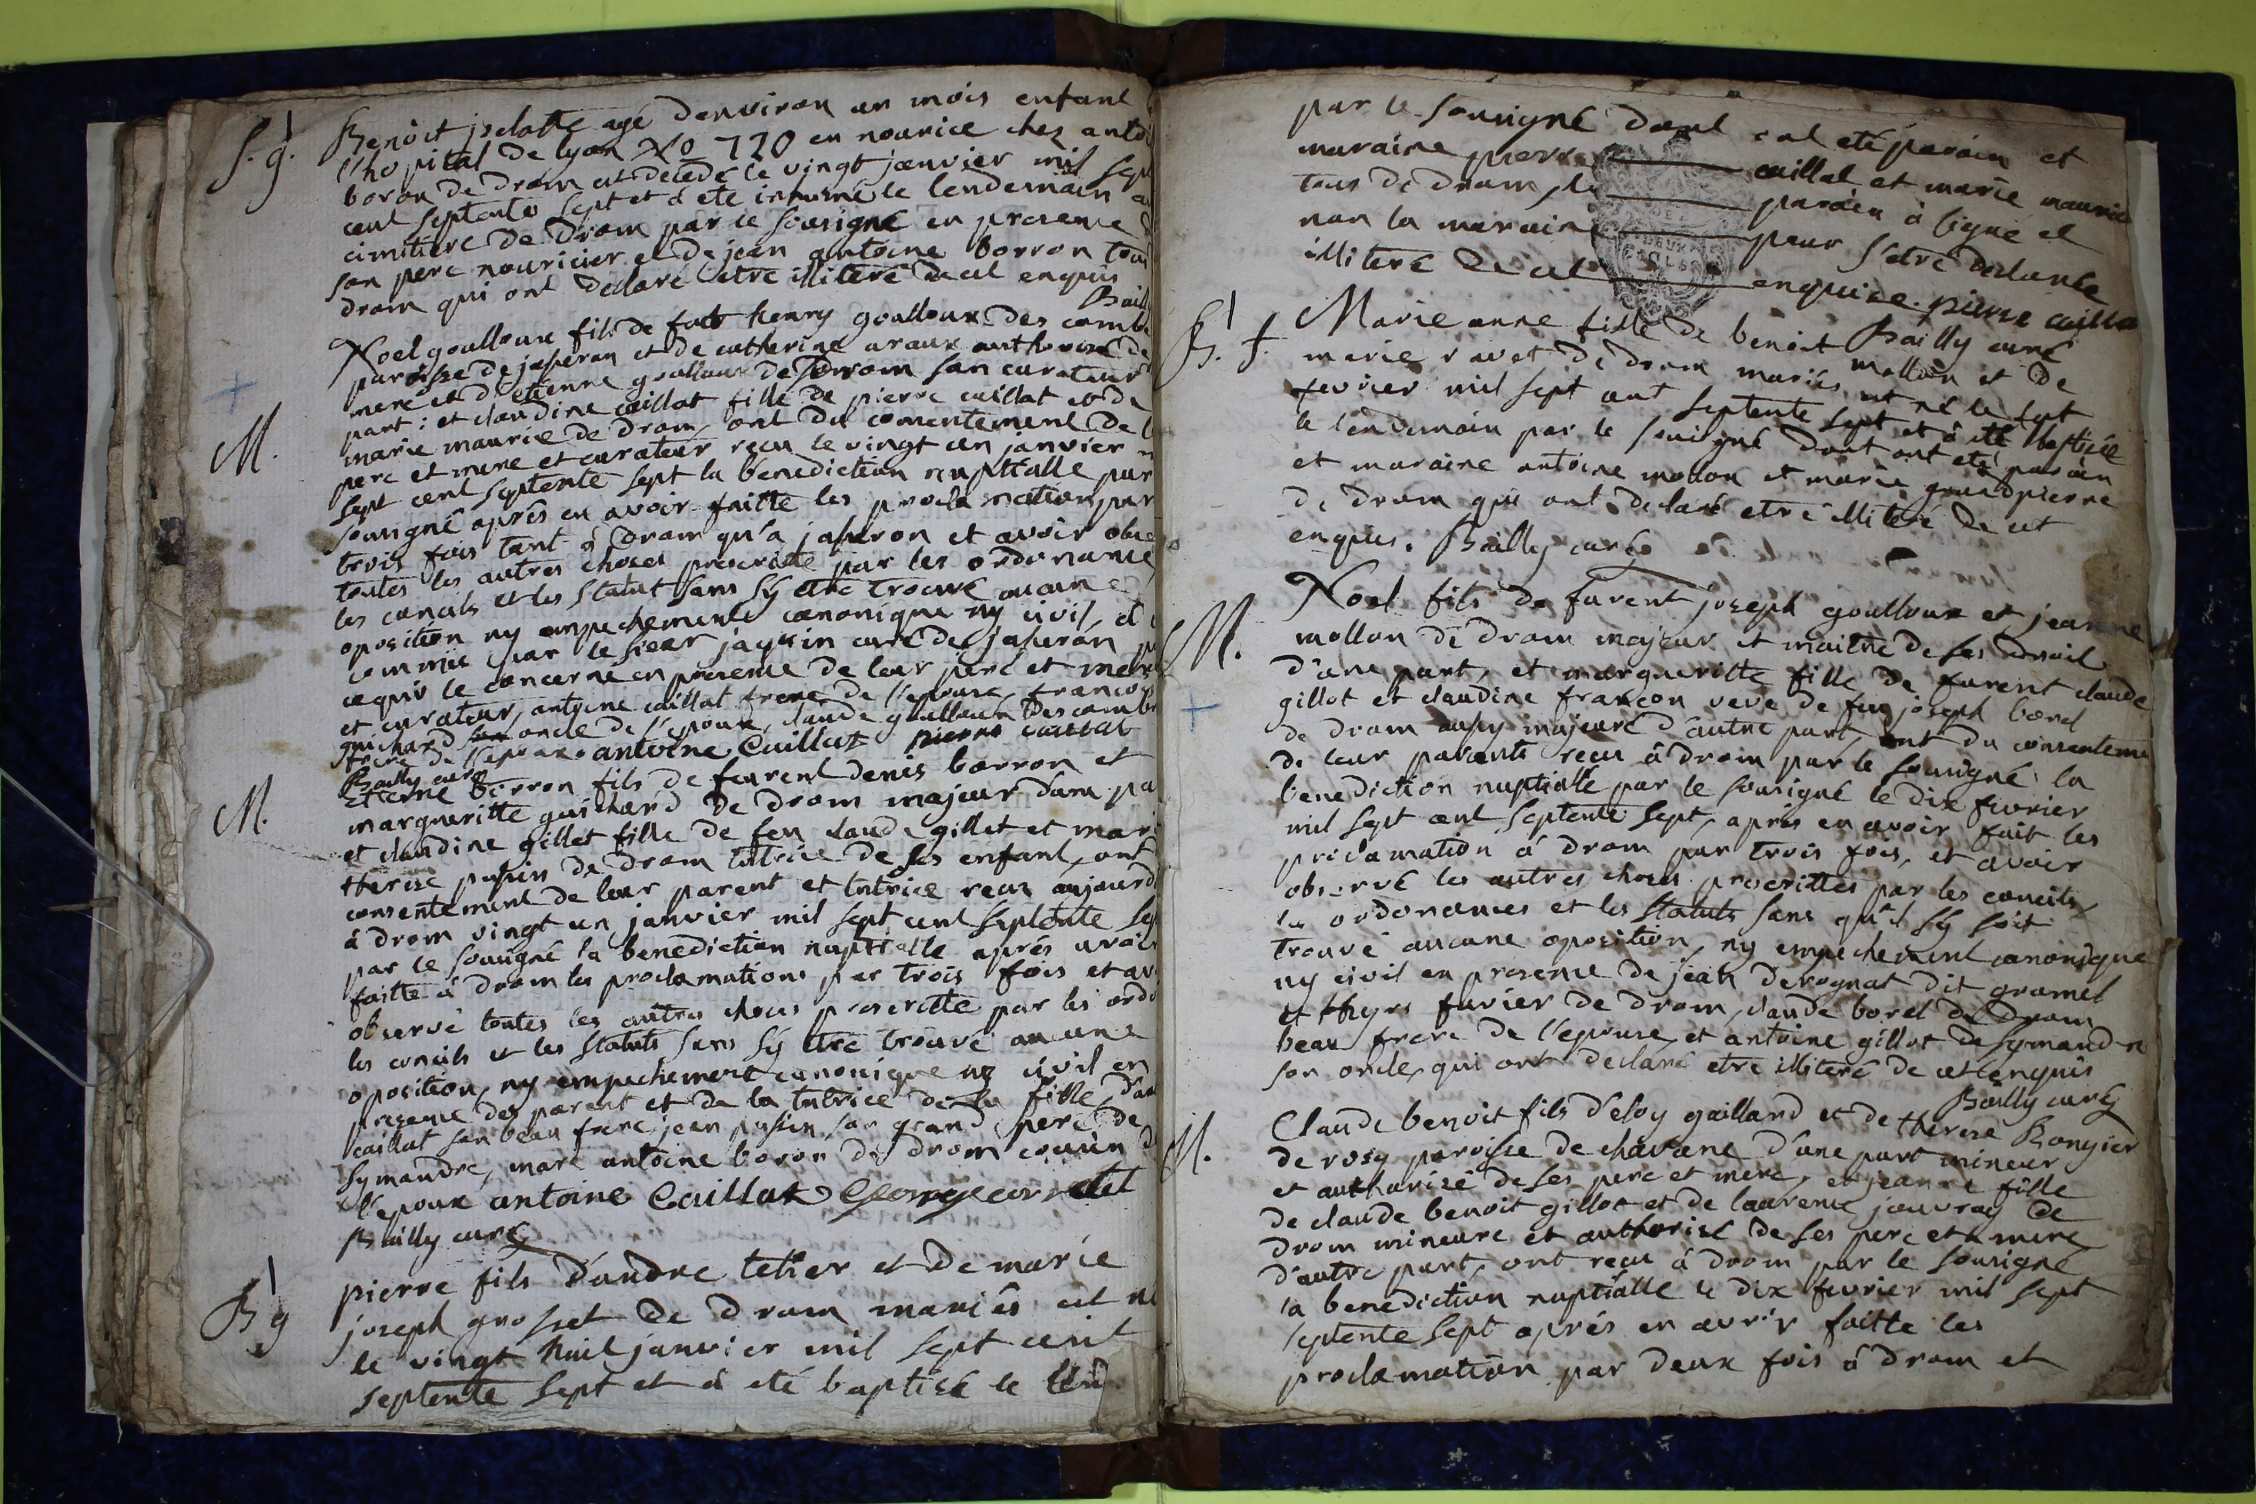 S. g. Benoit isclatte agé denviron un mois enfant
l'hopital de lyon No 770 en nourice chez antoi
boron de drom est decedé le vingt janvier mil sept
cent septente sept et à eté inhumé le lendemain au
cimitiere de drom par le sousigné en presence de
son pere nouricier et de jean antoine borron tous
drom qui ont declaré etre illiteré de cet enquis
Bailly
Noel goulloux fils de feu henry goulloux des combe
paroisse de jasseron et de catherine araux authorisé de
mere et d'etienne goulloux de drom son curateur
M. part ; et claudine caillat fille de pierre caillat et de
marie maurice de drom, ont du consentement de l
pere et mere et curateur reçu le vingt un janvier m
sept cent septente sept la benediction nuptialle par
sousigné aprés en avoir faitte les proclamation par
trois fois tant à drom qu'a jasseron et avoir obse
toutes les autres choses prescritte par les ordonance
les concils et les statut sans sy etre trouvé aucune
oposition ny empechement canonique ny civil, et
commis par le sieur jaquin curé de jasseron
ce qui le concerne en presence de leur pere et mere
et curateur, antoine caillat frere de l'epouse, francois
guichard oncle de l'epoux, claude goulloux des combe
frere de l'epoux antoine Caillat pierre caillat
Bailly curé
M. Etienne borron fils de feu rent denis borron et
margueritte guichard de drom majeur d'une pa
et claudine gillet fille de feu claude gillet et mari
therese pupin de drom tutrice de ses enfant, ont
consentement de leur parent et tutrice recu aujourd
à drom vingt un janvier mil sept cent septente sep
par le sousigné la benediction nuptialle aprés avoir
faitte à drom les proclamations par trois fois et av
observé toutes les autres choses prescritte par les ordo
les concils et les statuts sans sy etre trouvé aucune
oposition, ny empechement canonique ny civil en
presence des parent et de la tutrice de la fille, d'an
caillat son beau frere jean pupin son grand pere de
symandre, marc antoine boron de drom cousin d
l'epoux antoine Caillat George cornetet
Bailly curé
B g pierre fils d'andre tetier et de marie
joseph grosset de drom mariés est né
le vingt huit janvier mil sept cent
septente sept et à eté baptisé le len
par le sousigné dont ont eté parain et
maraine pierre caillat et marie maurice
tous de drom, le parain à signé et
non la maraine pour s'etre declarée
illiteré de cet enquise. pierre caillat
Bailly curé
B. f. Marie anne fille de benoit mollon et de
marie ravet de drom mariés est né le sept
fevrier mil sept cent septente sept et à eté baptisée
le lendemain par le sousigné dont ont eté parain
et maraine antoine mollon et marie grandpierre
de drom qui ont declaré etre illiteré de cet
enquis. Bailly curé
Noel fils de fu rent joseph goulloux et jeanne
M. mollon de drom majeur et maitre de ses droit
d'une part, et margueritte fille de fu rent claude
gillot et claudine françon veve de feu joseph borel
de drom aussy majeure d'autre part, ont du consenteme
de leur parents recu à drom par le sousigné la
benediction nuptialle par le sousigné le dix fevrier
mil sept cent septente sept, aprés en avoir fait les
proclamation à drom par trois fois, et avoir
observé les autres choses prescrittes par les conciles
les ordonances et les statuts sans qu'il sy soit
trouvé aucune oposition, ny empechement canonique
ny civil en presence de jean derognat dit gramel
et thyrs furier de drom, claude borel de drom
beau frere de l'epouse, et antoine gillot de symandre
son oncle, qui ont declaré etre illiteré de cet enquis
Bailly curé
M. Claude benoit fils d'eloy gaillard et de therese Rongier
de rosy paroisse de chavane d'une part mineur
et authorisé de ses pere et mere, et jeanne fille
de claude benoit gillot et de laurence jouvray de
drom mineure et authorisé de ses pere et mere
d'autre part, ont recu à drom par le sousigné
la benediction nuptialle le dix fevrier mil sept
septente sept aprés en avoir faitte les
proclamation par deux fois à drom et